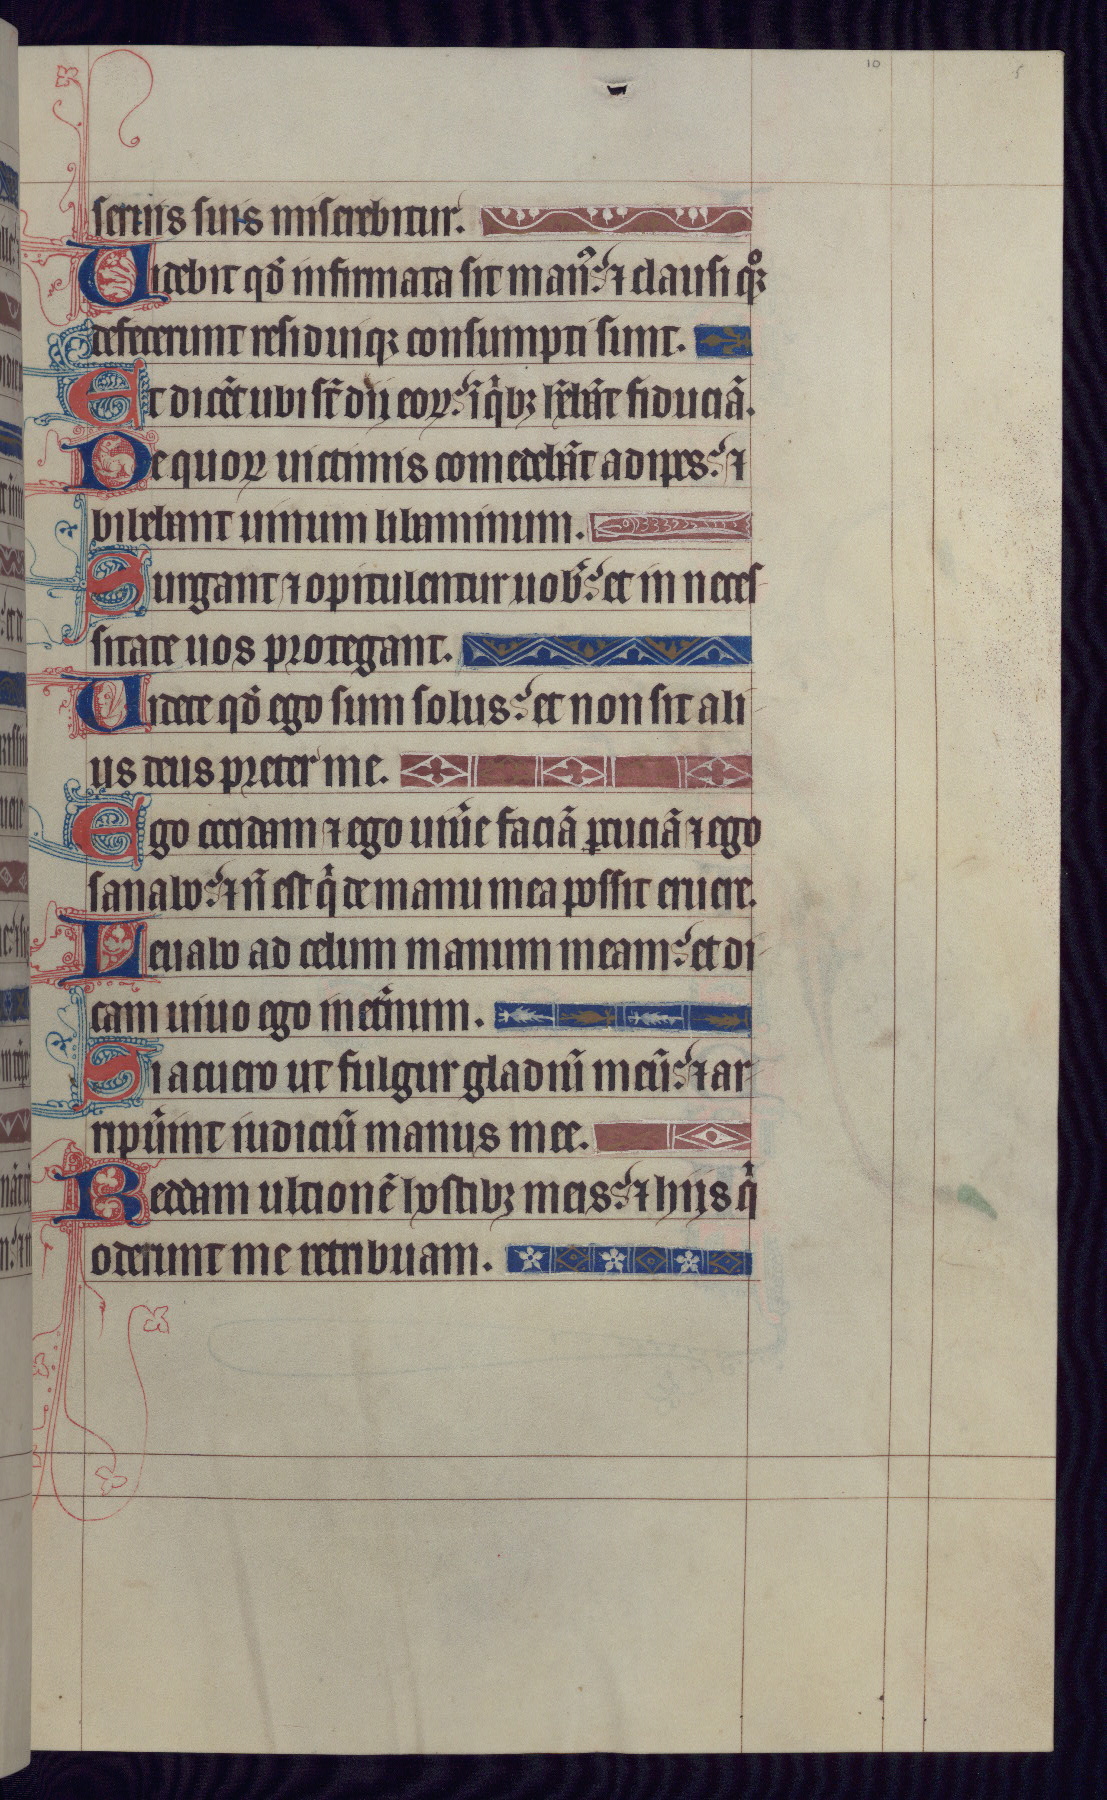 10 5
seruis suis miserebitur.
Uidebit qđ infirmata sit man⁹: ⁊ clausi qꝫ
defecerunt residuiqꝫ consumpti sunt.
Et dicẽt ubi st̃ dij eoꝝ: ĩ qⁱbꝫ hẽbãt fiduciã.
De quoꝝ uictimis comedebãt adipes: ⁊
bibebant uinum libaminum.
Surgant ⁊ opitulentur uob̃: et in neces
sitate uos protegant.
Uidete qđ ego sum solus: et non sit ali
us deus preter me.
Ego occidam ⁊ ego uiũe faciã ꝑcuciã ⁊ ego
sanabo: ⁊ ñ est qⁱ de manu mea possit eruere.
Leuabo ad celum manum meam: et di
cam uiuo ego inet̃num.
Si acuero ut fulgur gladiũ meũ: ⁊ ar
ripũint iudiciũ manus mee.
Reddam ultionẽ hostibꝫ meis: ⁊ hijs qⁱ
oderunt me retribuam.